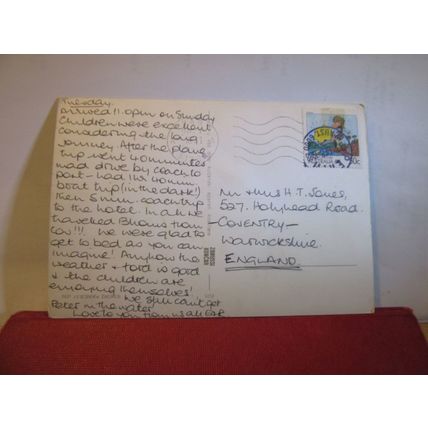 Tuesday.
arrived 11.0pm on Sunday
Children were excellent
considering the long
journey. After the plane
trip went 40 minutes
mad drive by coach to
port - had 1 hr 40 min
boat trip (in the dark!)
Then 5 min. coach trip
to the hotel. In all we
travelled 13 hours from
Cov!!! We were glad to
get to bed as you can
imagine! Anyhow the
weather & food is good
& the children are
enjoying themselves!
We still can't get
Peter in the water
Love to you from us all
Mr & Mrs H.T. Jones,
527, Holyhead Road.
- COVENTRY -
Warwickshire.
ENGLAND.